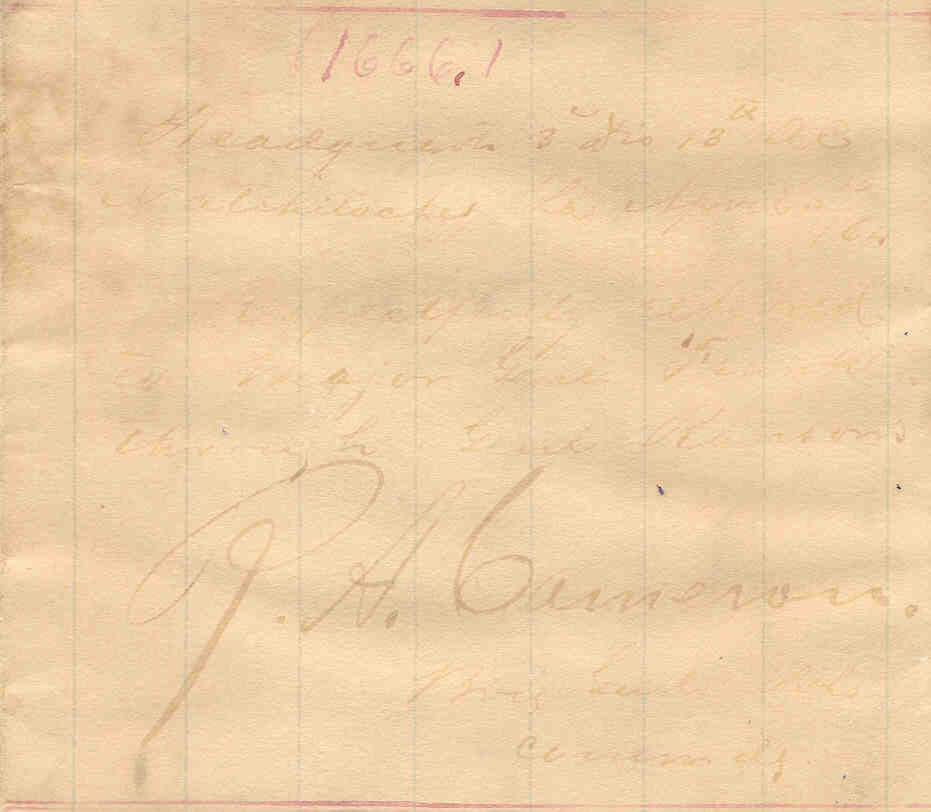 1666.1
Headqurs 3 Div 13 A C
Natchitoches La April
64
Respectfully returned
to Major Genl Franklin
through Genl Ransom
R. A. Cameron.
Brig Genl Vols
Commdg.